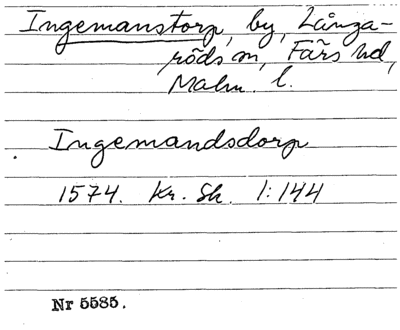 Ingemanstorp, by, Långa-
röds sn, Färs hd,
Malm. l.
Ingemandsdorp
1574. Kr. Sk. 1:144
Nr 5585.